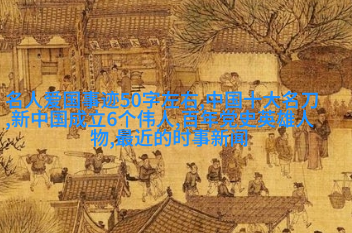 名人爱国事迹50字左右,中国十大名刀
,新中国成立6个伟人,百年党史英雄人
物,最近的时事新闻